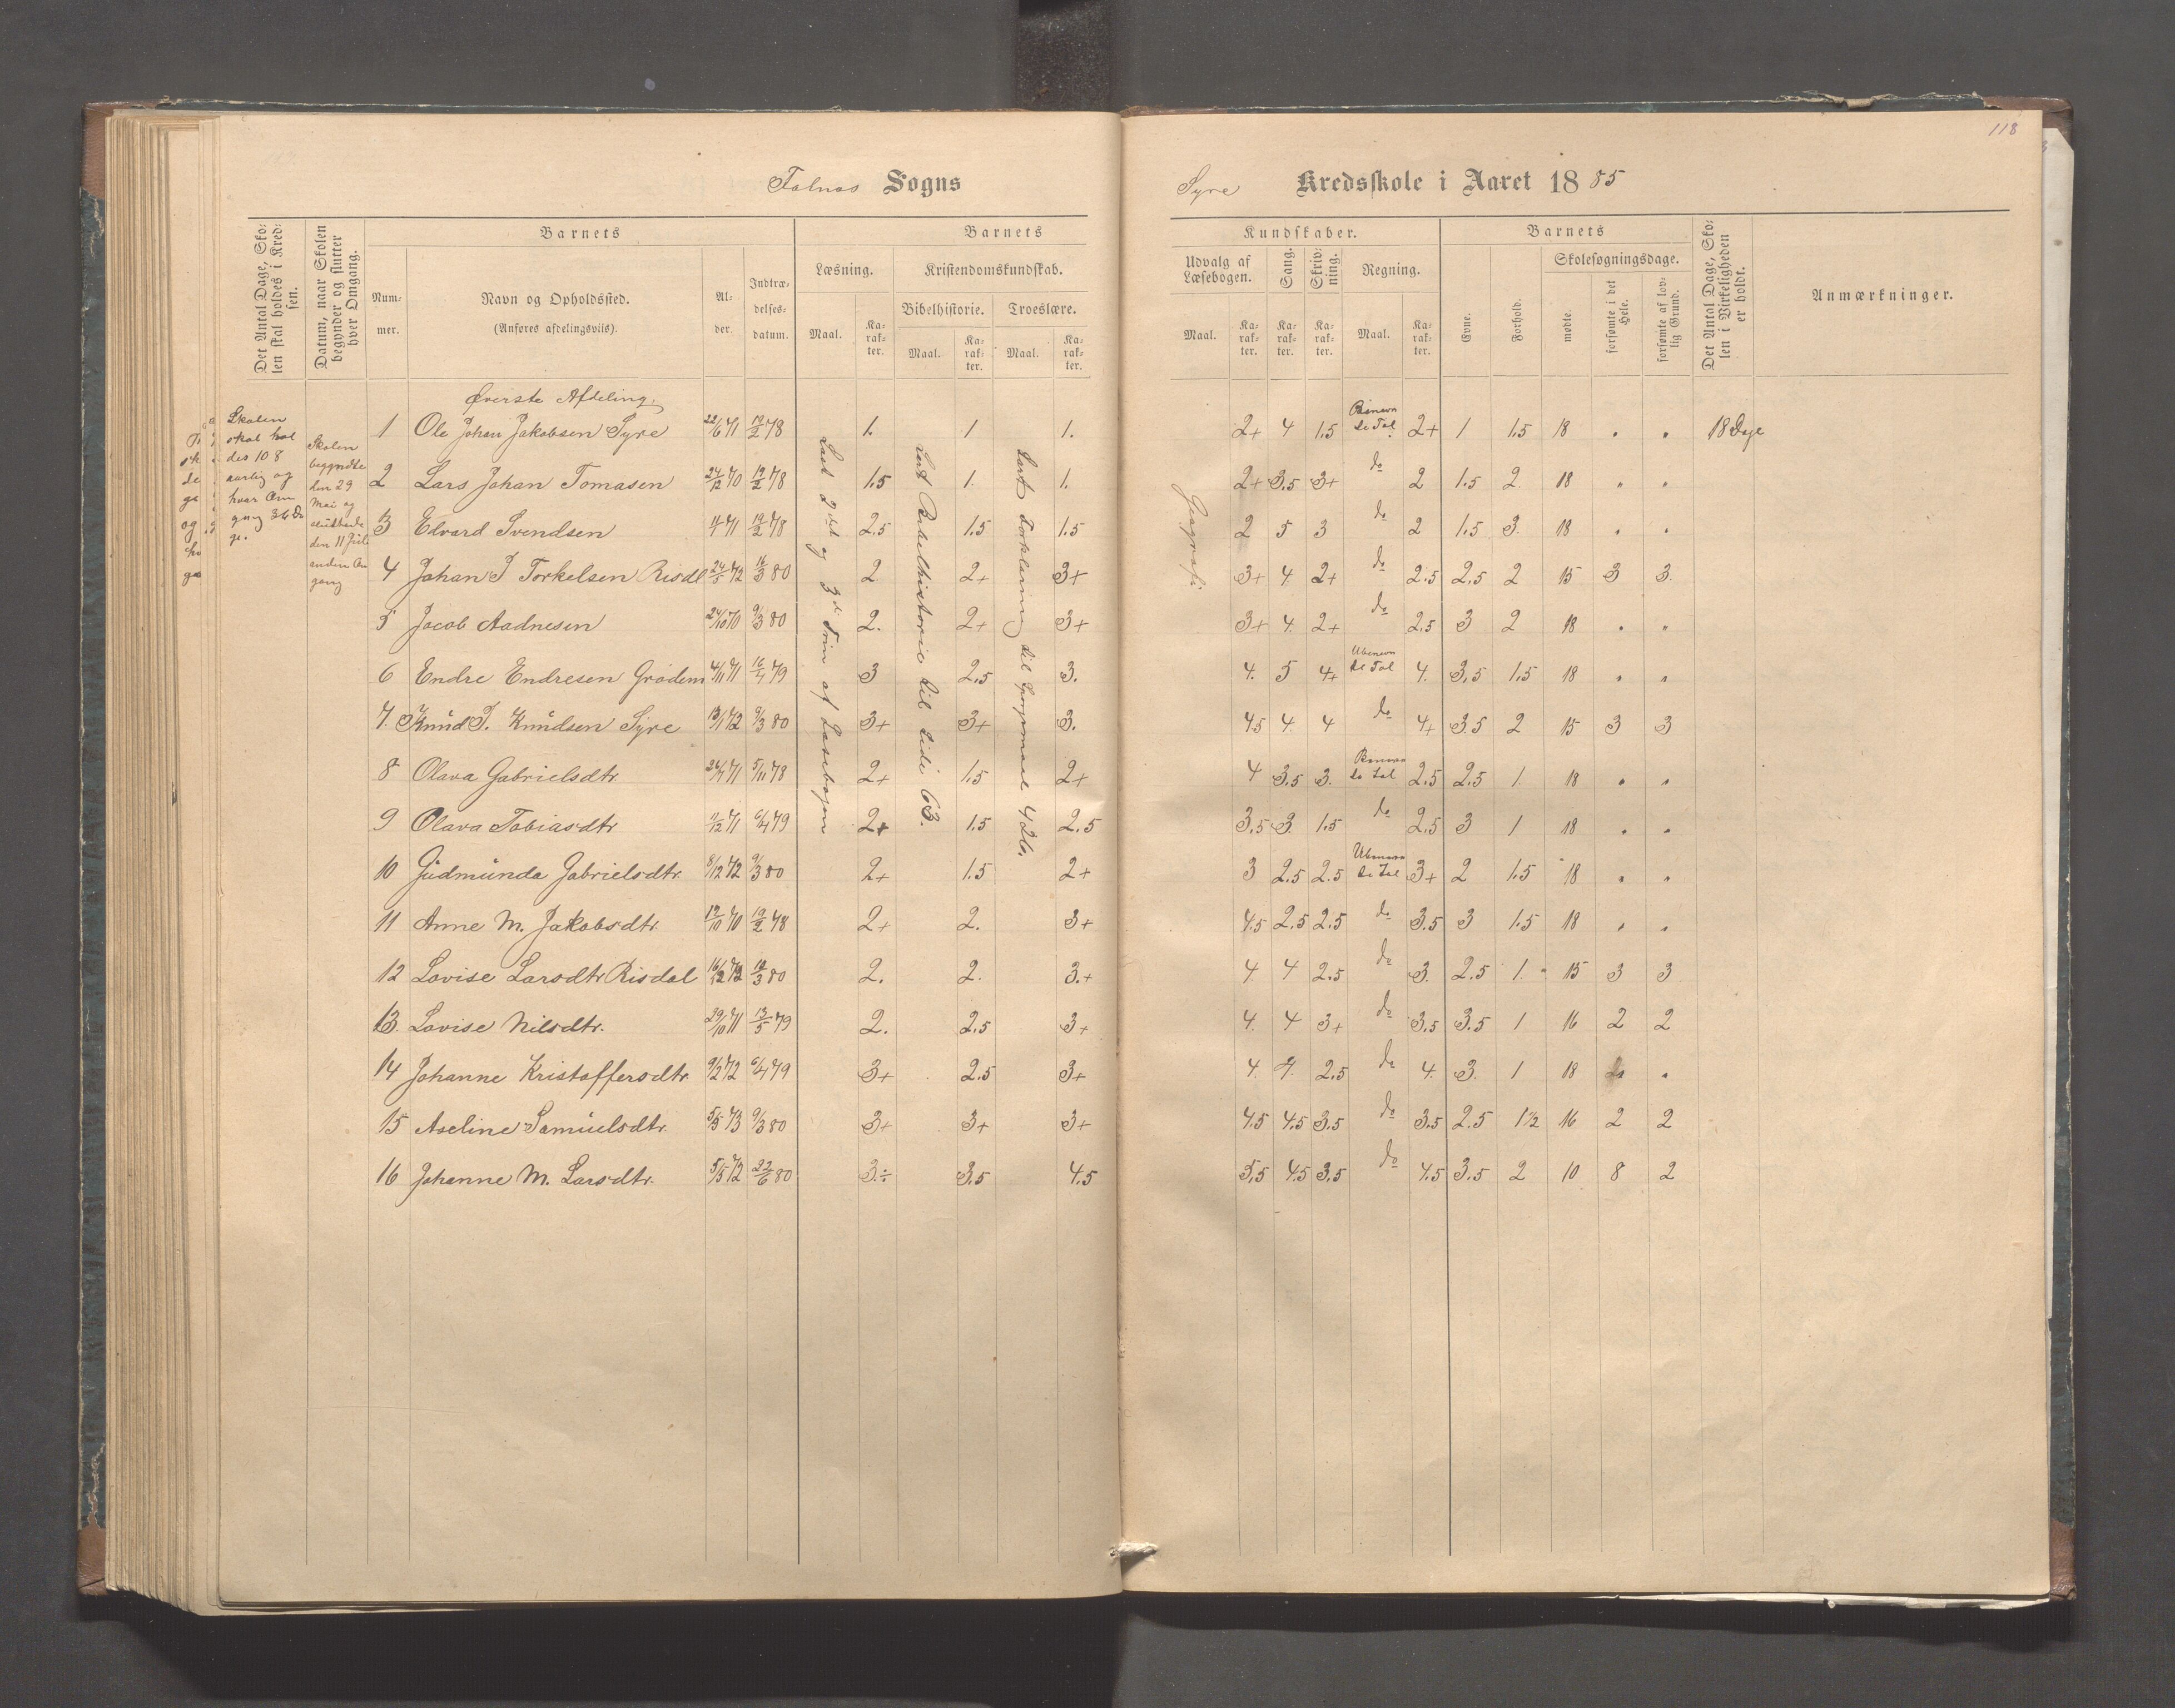 118
Falnes Sogns
Syre Kredsskole i Aaret 1885
Det Antal Dage, Sko-
len skal holdes i Kred-
sen.
Datum, naar Skolen
begynder og slutter
hver Omgang.
Barnets
Num-
mer.
Navn og Opholdssted.
(Anføres afdelingsviis).
Al-
der.
Indtræ-
delses-
datum.
Barnets
Læsning.
Maal.
Ka-
rak-
ter.
Kristendomskundskab.
Bibelhistorie.
Maal.
Ka-
rak-
ter.
Troeslære.
Maal.
Ka-
rak-
ter.
Kundskaber.
Udvalg af
Læsebogen.
Maal.
Ka-
rak-
ter.
Sang.
Ka-
rak-
ter.
Skriv-
ning.
Ka-
rak-
ter.
Regning.
Maal.
Ka-
rak-
ter.
Barnets
Evne.
Forhold.
Skolesøgningsdage.
mødte.
forsømte i det
Hele.
forsømte af lov-
lig Grund.
Det Antal Dage, Sko-
len i Virkeligheden
er holdt.
Anmærkninger.
Skolen
skal hol
des 108
aarlig og
hver Om
gang 36 Da
ge.
Skolen
begyndte
den 29
Mai og
sluttede
den 11 Juli
anden Om
gang
Øverste Afdeling.
Læst 2det og 3die Trin af Læsebogen
Læst Bibelhistorie til Side 63.
Læst Forklaring til Spørgsmaal 426.
Geografi
1 Ole Johan Jakobsen Syre 22/6 71 19/2 78 1. 1 1. 2+ 4 1.5 Benevn
de Tal 2+ 1 1.5 18 " " 18 Dage
2 Lars Johan Tomasen 24/12 70 19/2 78 1.5 1. 1. 2+ 3.5 3+ do 2 1.5 2. 18 " "
3 Edvard Svendsen 11/1 71 19/2 78 2.5 1.5 1.5 2 5 3 do 2 1.5 3. 18 " "
4 Johan J Torkelsen Risdl 24/5 72 16/3 80 2 2+ 3+ 3+ 4. 2+ do 2.5 2.5 2 15 3 3.
5 Jacob Aadnesen 24/10 70 9/3 80 2. 2+ 3+ 3+ 4. 2+ do 2.5 3 2 18 " "
6 Endre Endresen Grödem 4/11 71 16/4 79 3 2.5 3. 4. 5 4+ Ubenevn
de Tal 4. 3.5 1.5 18 " "
7. Knud T. Knudsen Syre 13/1 72 9/3 80 3+ 3+ 3. 4.5 4. 4 do 4+ 3.5 2 15 3 3
8 Olava Gabrielsdtr 24/7 71 5/11 78 2+ 1.5 2+ 4 3.5 3. Benevn
de Tal 2.5 2.5 1. 18 " "
9 Olava Tobiasdtr 11/12 71 6/4 79 2+ 1.5 2.5 3.5 3. 1.5 do 2.5 3 1 18 " "
10 Gudmunda Gabrielsdtr. 8/12 72 9/3 80 2+ 1.5 2+ 3 2.5 2.5 Ubenevn
de Tal 3+ 2 1.5 18 " "
11 Anne M. Jakobsdtr. 19/10 70 19/2 78 2+ 2. 3+ 4.5 2.5 2.5 do 3.5 3 1.5 18 " "
12 Lovise Larsdtr Risdal 16/12 72 19/3 80 2. 2. 3.+ 4 4 2.5 do 3. 2.5 1. 15 3 3
13. Lovise Nilsdtr. 29/10 71 13/5 79 2. 2.5 3+ 4. 4 3+ do 3.5 3.5 1 16 2 2
14 Johanne Kristoffersdtr. 9/2 72 6/4 79 3+ 2.5 3+ 4. 4. 2.5 do 4. 3. 1 18 "
15 Aseline Samuelsdtr. 5/5 73 9/3 80 3+ 3+ 3+ 4.5 4.5 3.5 do 3.5 2.5 1 1/2 16 2 2
16 Johanne M. Larsdtr. 5/5 72 22/6 80 3÷ 3.5 4.5 5,5 4.5 3.5 do 4.5 3.5 2 10 8 2